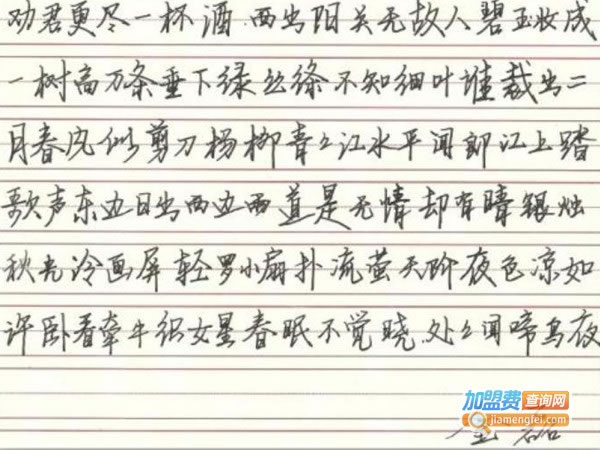 劝君更尽一杯酒西出阳关无故人碧玉妆成
一树高万条垂下绿丝绦不知细叶谁裁出二
月春风似剪刀杨柳青々江水平闻郎江上踏
歌声东边日出西边雨道是无情却有晴银烛
秋光冷画屏轻罗小扇扑流萤天阶夜色凉如
许卧看牵牛织女星春眠不觉晓处々闻啼鸟夜
加盟费查询网
jiamengfei.com